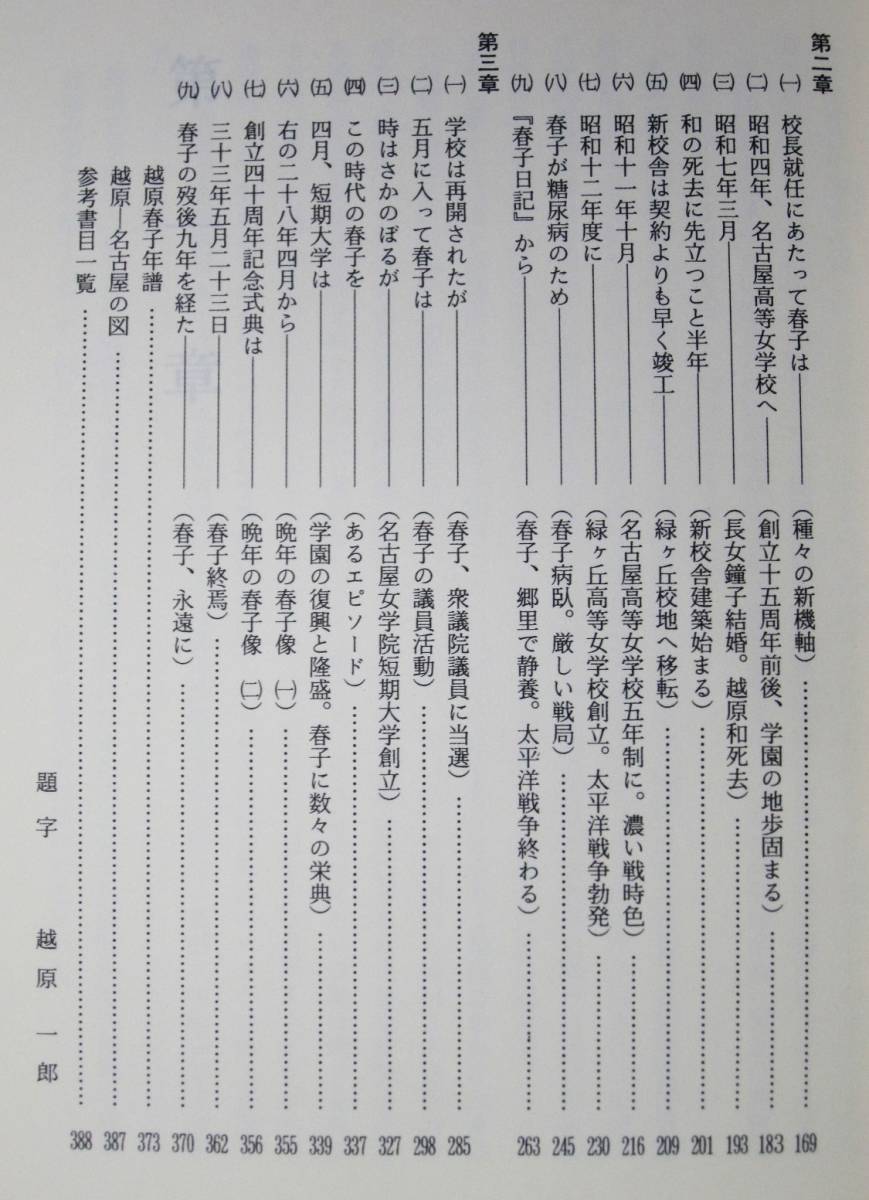 第二章
㈠ 校長就任にあたって春子は――――（種々の新機軸）……………169
㈡ 昭和四年、名古屋高等女学校へ――（創立十五周年前後、学園の地歩固まる）……………183
㈢ 昭和七年三月――――（長女鐘子結婚。越原和死去）……………193
㈣ 和の死去に先立つこと半年――――（新校舎建築始まる）……………201
㈤ 新校舎は契約よりも早く竣工――――（緑ヶ丘校地へ移転）……………209
㈥ 昭和十一年十月――――（名古屋高等女学校五年制に。濃い戦時色）……………216
㈦ 昭和十二年度に――――（緑ヶ丘高等女学校創立。太平洋戦争勃発）……………230
㈧ 春子が糖尿病のため――――（春子病臥。厳しい戦局）……………245
㈨ 『春子日記』から――――（春子、郷里で静養。太平洋戦争終わる）……………263
第三章
㈠ 学校は再開されたが――――（春子、衆議院議員に当選）……………285
㈡ 五月に入って春子は――――（春子の議員活動）……………298
㈢ 時はさかのぼるが――――（名古屋女学院短期大学創立）……………327
㈣ この時代の春子を――――（あるエピソード）……………337
㈤ 四月、短期大学は――――（学園の復興と隆盛。春子に数々の栄典）……………339
㈥ 右の二十八年四月から――――（晩年の春子像 ㈠）……………355
㈦ 創立四十周年記念式典は――――（晩年の春子像 ㈡）……………356
㈧ 三十三年五月二十三日――――（春子終焉）……………362
㈨ 春子の歿後九年を経た――――（春子、永遠に）……………370
越原春子年譜……………373
越原―名古屋の図……………387
参考書目一覧……………388
題字 越原一郎